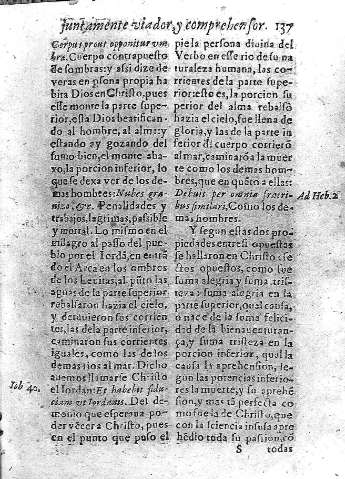 Juntamente viador, y comprehensor. 137
Corpus prout opponitur vm-
bra. Cuerpo contrapuesto
de sombras: y assi dize de
veras en persona propia ha
bita Dios en Christo, pues
es el monte la parte supe-
rior, està Dios beatifican-
do al hombre, al alma: y
estando ay gozando del
sumo bien, el monte aba-
xo, la porcion inferior, lo
que se dexa ver de los de-
mas hombres: Nubes gra-
niza, &c. Penalidades y
trabajos, lagrimas, passible
y mortal. Lo mismo en el
milagro al passo del pue-
blo por el Iordã, en entrã
do el Arca en los ombros
de los Leuitas, al pũto las
aguas de la parte superior
rebalsaron hazia el cielo,
y detuuieron sus corrien-
tes, las de la parte inferior,
caminaron sus corrientes
iguales, como las de los
demas rios al mar. Dicho
auemos llamarse Christo
el Iordan: Et habebit fidu-
ciam vt Iordanis. Del de-
monio que esperaua po-
der vẽcer a Christo, pues
en el punto que puso el
Iob 40.
pie la persona diuina del
Verbo en esse rio de su na
turaleza humana, las co-
rrientes de la parte supe-
rior: esto es, la porcion su
perior del alma rebalsò
hazia el cielo, fue llena de
gloria, y las de la parte in
ferior dl cuerpo corrierõ
al mar, caminarõ a la muer
te como los demas hom-
bres, que en quãto a ellas:
Debuit per omnia fratri-
bus similari, Como los de-
mas, hombres.
Ad Heb. 2
Y segun estas dos pro
piedades entre si opuestas
se hallaron en Christo efe
ctos opuestos, como fue
suma alegria y suma tris-
teza: suma alegria en la
parte superior, qual causa,
o nace de la suma felici-
dad de la bienauenturan-
ça, y suma tristeza en la
porcion inferior, qual la
causa la aprehension, se-
gun las potencias inferio-
res la muerte, y su aprehẽ
sion, y mas tã perfecta co
mo fue la de Christo, que
con la sciencia infusa apre
hẽdio toda su passion, cõ
S todas